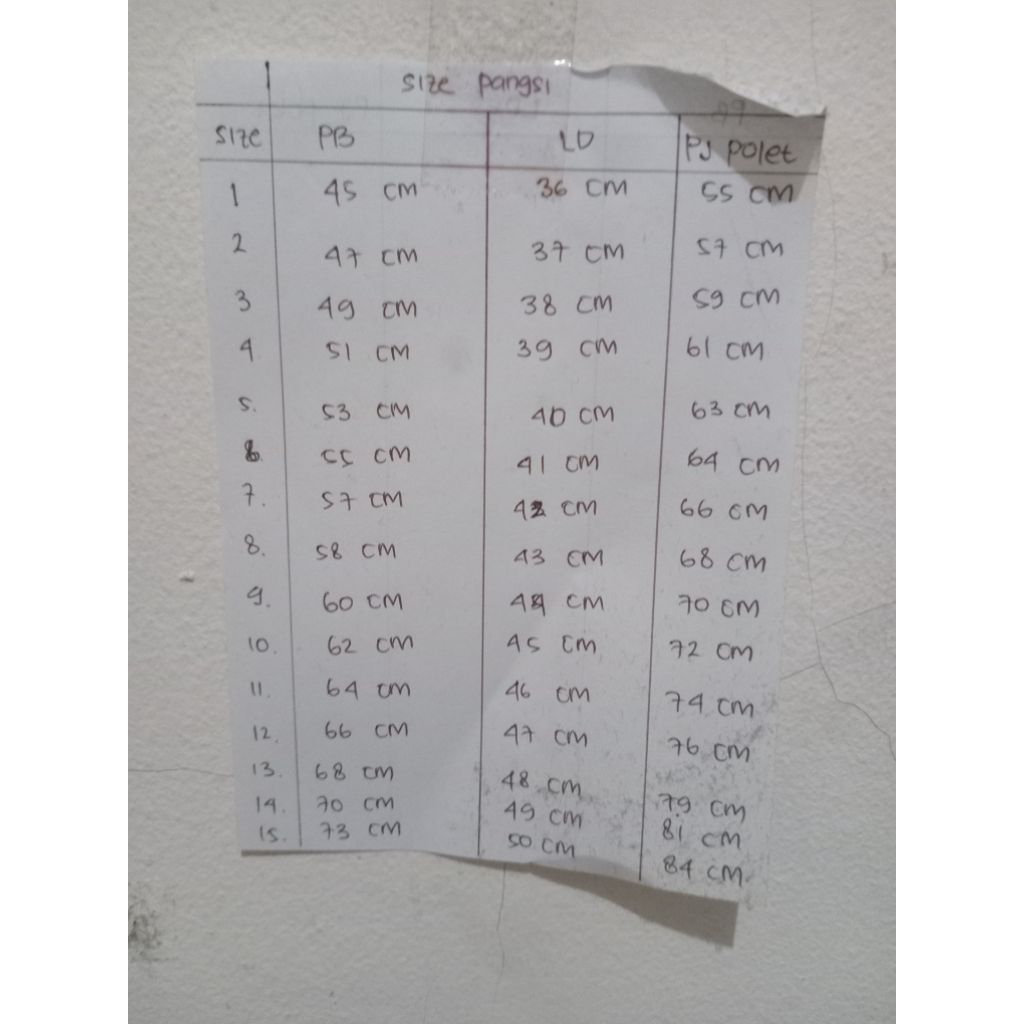 size pangsi
SIZE PB LD PJ polet
1 45 cm 36 cm 55 cm
2 47 cm 37 cm 57 cm
3 49 cm 38 cm 59 cm
4 51 cm 39 cm 61 cm
5. 53 cm 40 cm 63 cm
6. 55 cm 41 cm 64 cm
7. 57 cm 42 cm 66 cm
8. 58 cm 43 cm 68 cm
9. 60 cm 44 cm 70 cm
10. 62 cm 45 cm 72 cm
11. 64 cm 46 cm 74 cm
12. 66 cm 47 cm 76 cm
13. 68 cm 48 cm 79 cm
14. 70 cm 49 cm 81 cm
15. 73 cm 50 cm 84 cm